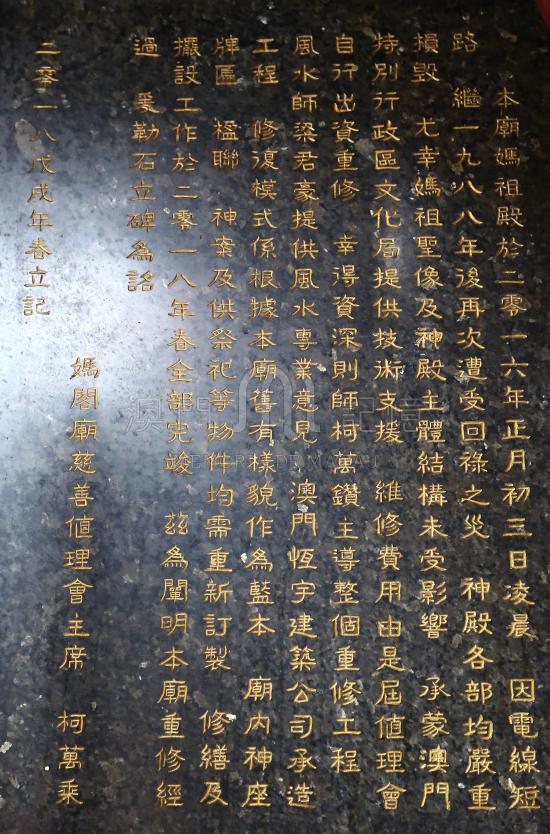 本廟媽祖殿於二零一六年正月初三日凌晨　因電線短
路　繼一九八八年後再次遭受回祿之災　神殿各部均嚴重
損毀　尤幸媽祖聖像及神殿主體結構未受影響　承蒙澳門
特別行政區文化局提供技術支援　維修費用由是屆值理會
自行出資重修　幸得資深則師柯萬鑽主導整個重修工程
風水師梁君豪提供風水專業意見　澳門恆宇建築公司承造
工程　修復模式係根據本廟舊有樣貌作為藍本　廟內神座
牌匾　楹聯　神案及供祭祀等物件均需重新訂製　修繕及
擺設工作於二零一八年春全部完竣　茲為闡明本廟重修經
過　爰勒石立碑為誌
媽閣廟慈善値理會主席　柯萬乘
二零一八戊戌年春立記
澳門記憶